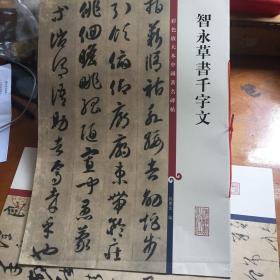 智永草書千字文
彩色放大本中國著名碑帖
指薪脩祜永綏吉劭矩步
引領俯仰廊廟束帶矜莊
徘徊瞻眺孤陋寡聞愚蒙
等誚謂語助者焉哉乎也